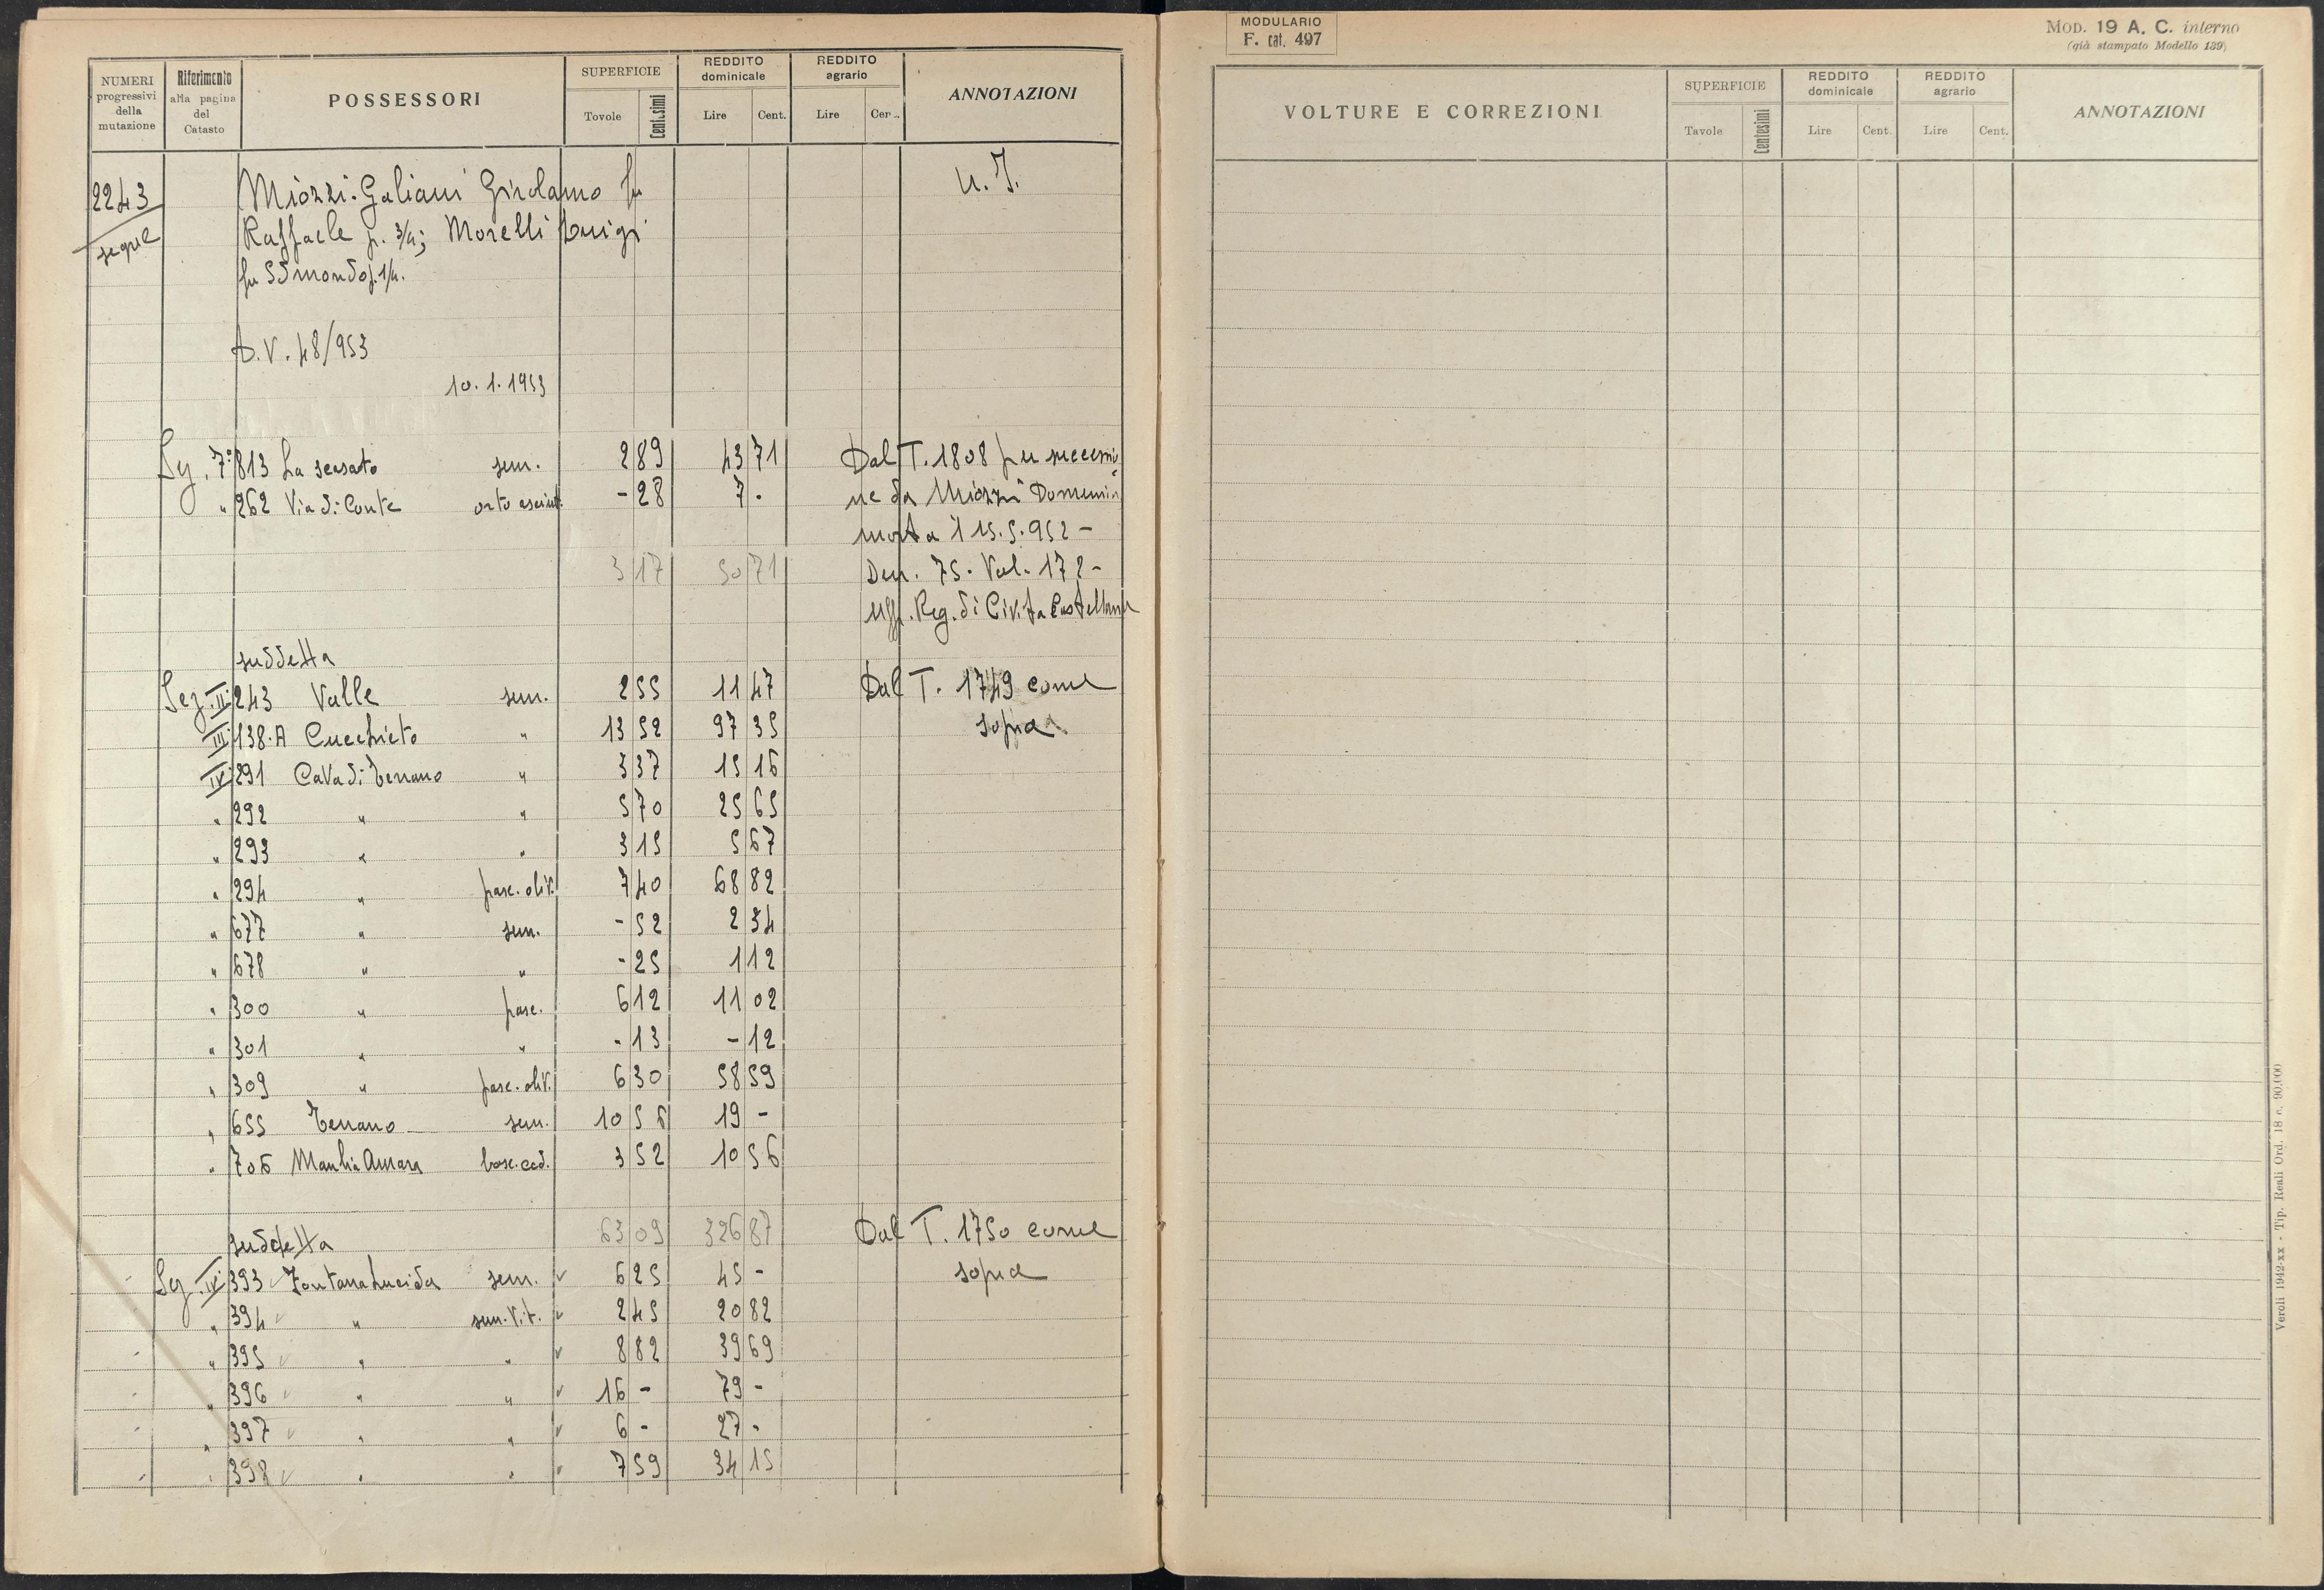 NUMERI progressivi della mutazione
Riferimento alla pagina del Catasto
POSSESSORI
SUPERFICIE
Tavole Centesimi
REDDITO dominicale
Lire Cent.
REDDITO agrario
Lire Cen..
ANNOTAZIONI
2243 Miozzi-Galiani Girolamo fu U.I.
segue Raffaele p. 3/4; Morelli Luigi
fu Edmondo p. 1/4.
D.V. 48/953
10.1.1953
7° 813 La sensato sem. 2 89 43 71 Dal T. 1808 per
" 262 Via di Conte orto asciut. - 28 7 - ne da Miozzi
morta il 15.5.952 -
3 17 50 71 Den. 75. Vol. 172 -
Uff. Reg. di Civita Castellana
suddetta
Sez. II 243 Valle sem. 2 55 11 47 Dal T. 1749 come
III 138.A Cucchieto " 13 52 97 35 sopra
IV 291 Cava di Terrano " 3 37 15 16
" 292 " " 5 70 25 65
" 293 " " 3 15 5 67
" 294 " pasc. oliv. 7 40 68 82
" 677 " sem. - 52 2 34
" 678 " " - 25 1 12
" 300 " pasc. 6 12 11 02
" 301 " " - 13 - 12
" 309 " pasc. oliv. 6 30 58 59
" 655 Terrano sem. 10 56 19 -
" 706 Amara bosc. ced. 3 52 10 56
suddetta 63 09 326 87 Dal T. 1750 come
IV 393 Fontana Lucida sem. 6 25 45 - sopra
" 394 " sem. vit. 2 45 20 82
" 395 " " 8 82 39 69
" 396 " " 16 - 79 -
" 397 " " 6 - 27 -
" 398 " " 7 59 34 15
MODULARIO
F. cat. 497
MOD. 19 A. C. interno
(già stampato Modello 139)
VOLTURE E CORREZIONI
SUPERFICIE
Tavole Centesimi
REDDITO dominicale
Lire Cent.
REDDITO agrario
Lire Cent.
ANNOTAZIONI
Veroli 1942-XX - Tip. Reali Ord. 18 c. 90.000